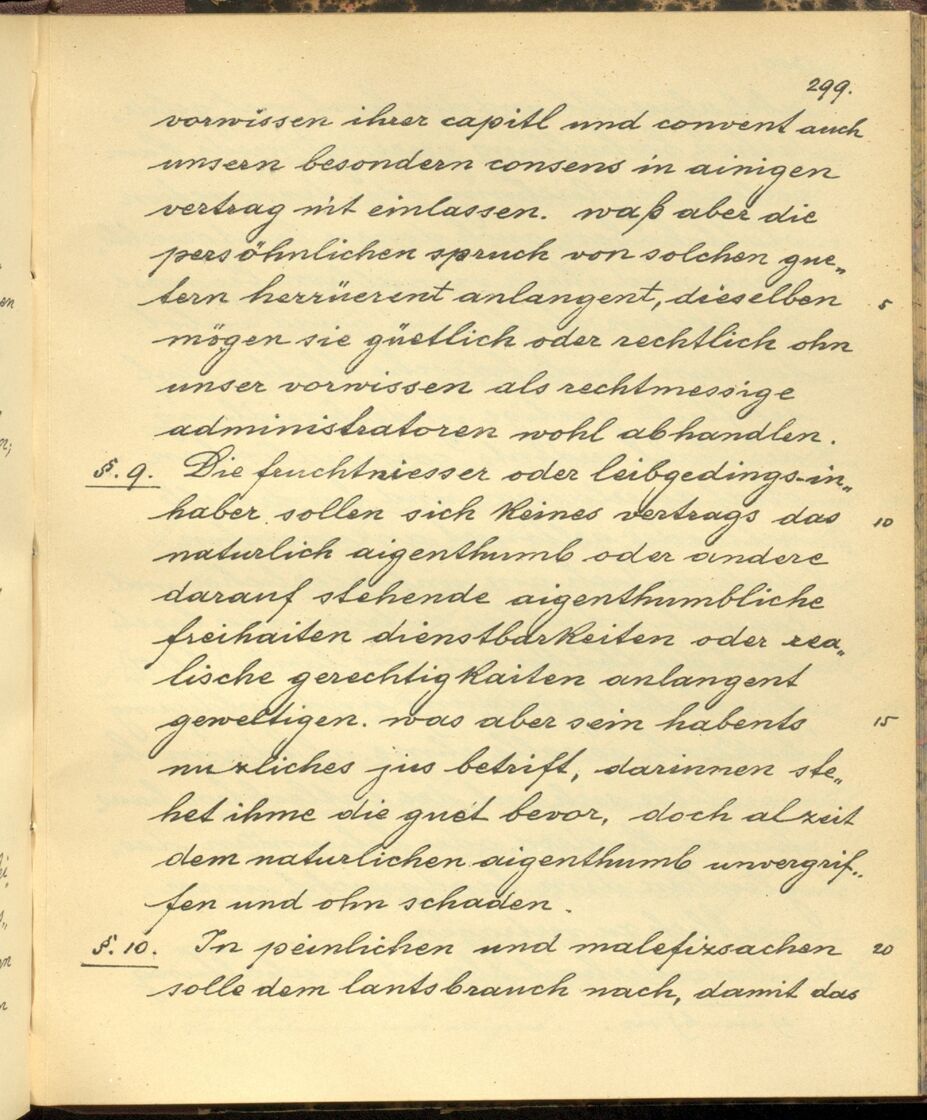 299.
vorwissen ihrer capitl und convent auch
unsern besondern consens in ainigen
vertrag nit einlassen. waß aber die
persöhnlichen spruch von solchen gue„
tern herrüerent anlangent, dieselben
5
mögen sie güetlich oder rechtlich ohn
unser vorwissen als rechtmessige
administratoren wohl abhandlen.
§. 9. Die fruchtniesser oder leibgedings-in„
haber sollen sich keines vertrags das
10
naturlich aigenthumb oder andere
darauf stehende aigenthumbliche
freihaiten dienstbarkeiten oder rea„
lische gerechtigkaiten anlangent
geweltigen. was aber sein habents
15
nuzliches jus betrift, darinnen ste„
het ihme die guet bevor, doch alzeit
dem naturlichen aigenthumb unvergrif„
fen und ohn schaden.
§. 10. In peinlichen und malefizsachen
20
solle dem lantsbrauch nach, damit das